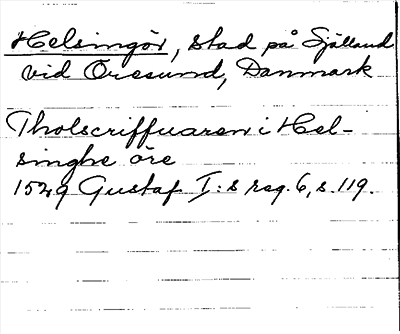 Helsingör, stad på Själland
vid Öresund, Danmark
Tholscriffuaren i Hel-
singhe öre
1529 Gustaf I:s reg. 6, s. 119.